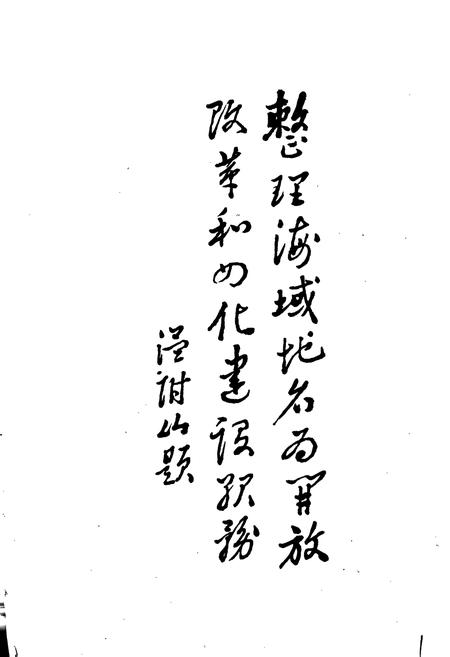 整理海域地名为開放
改革和四化建设服務
温附山题